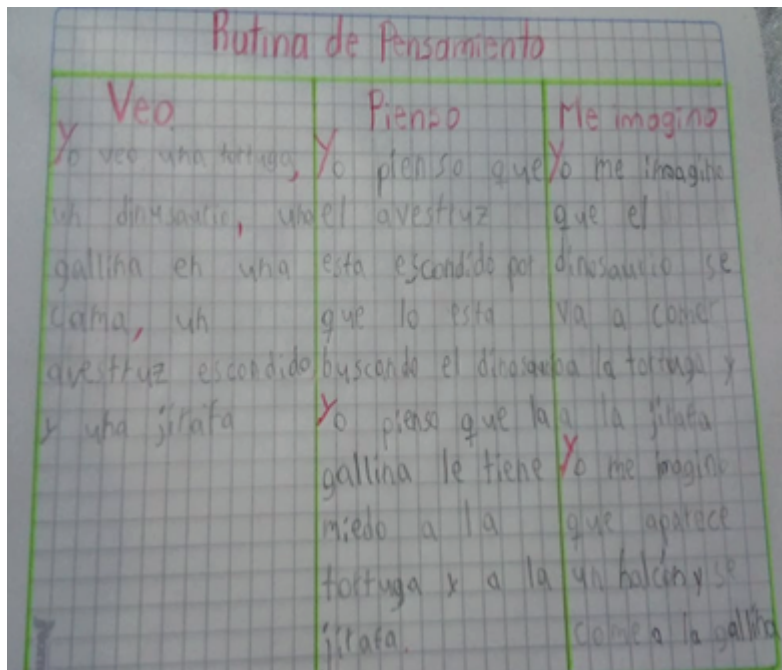 Rutina de Pensamiento
Veo
Yo veo una tortuga,
un dinosaurio, una
gallina en una
cama, un
avestruz escondido
y una jirafa
Pienso
Yo pienso que
el avestruz
esta escondido por
que lo esta
buscando el
Yo pienso que la
gallina le tiene
miedo a la
tortuga y a la
jirafa.
Me imagino
Yo me imagino
que el
dinosaurio se
va a comer
a la tortuga y
a la jirafa
Yo me imagino
que aparece
un halcon y se
come a la gallina